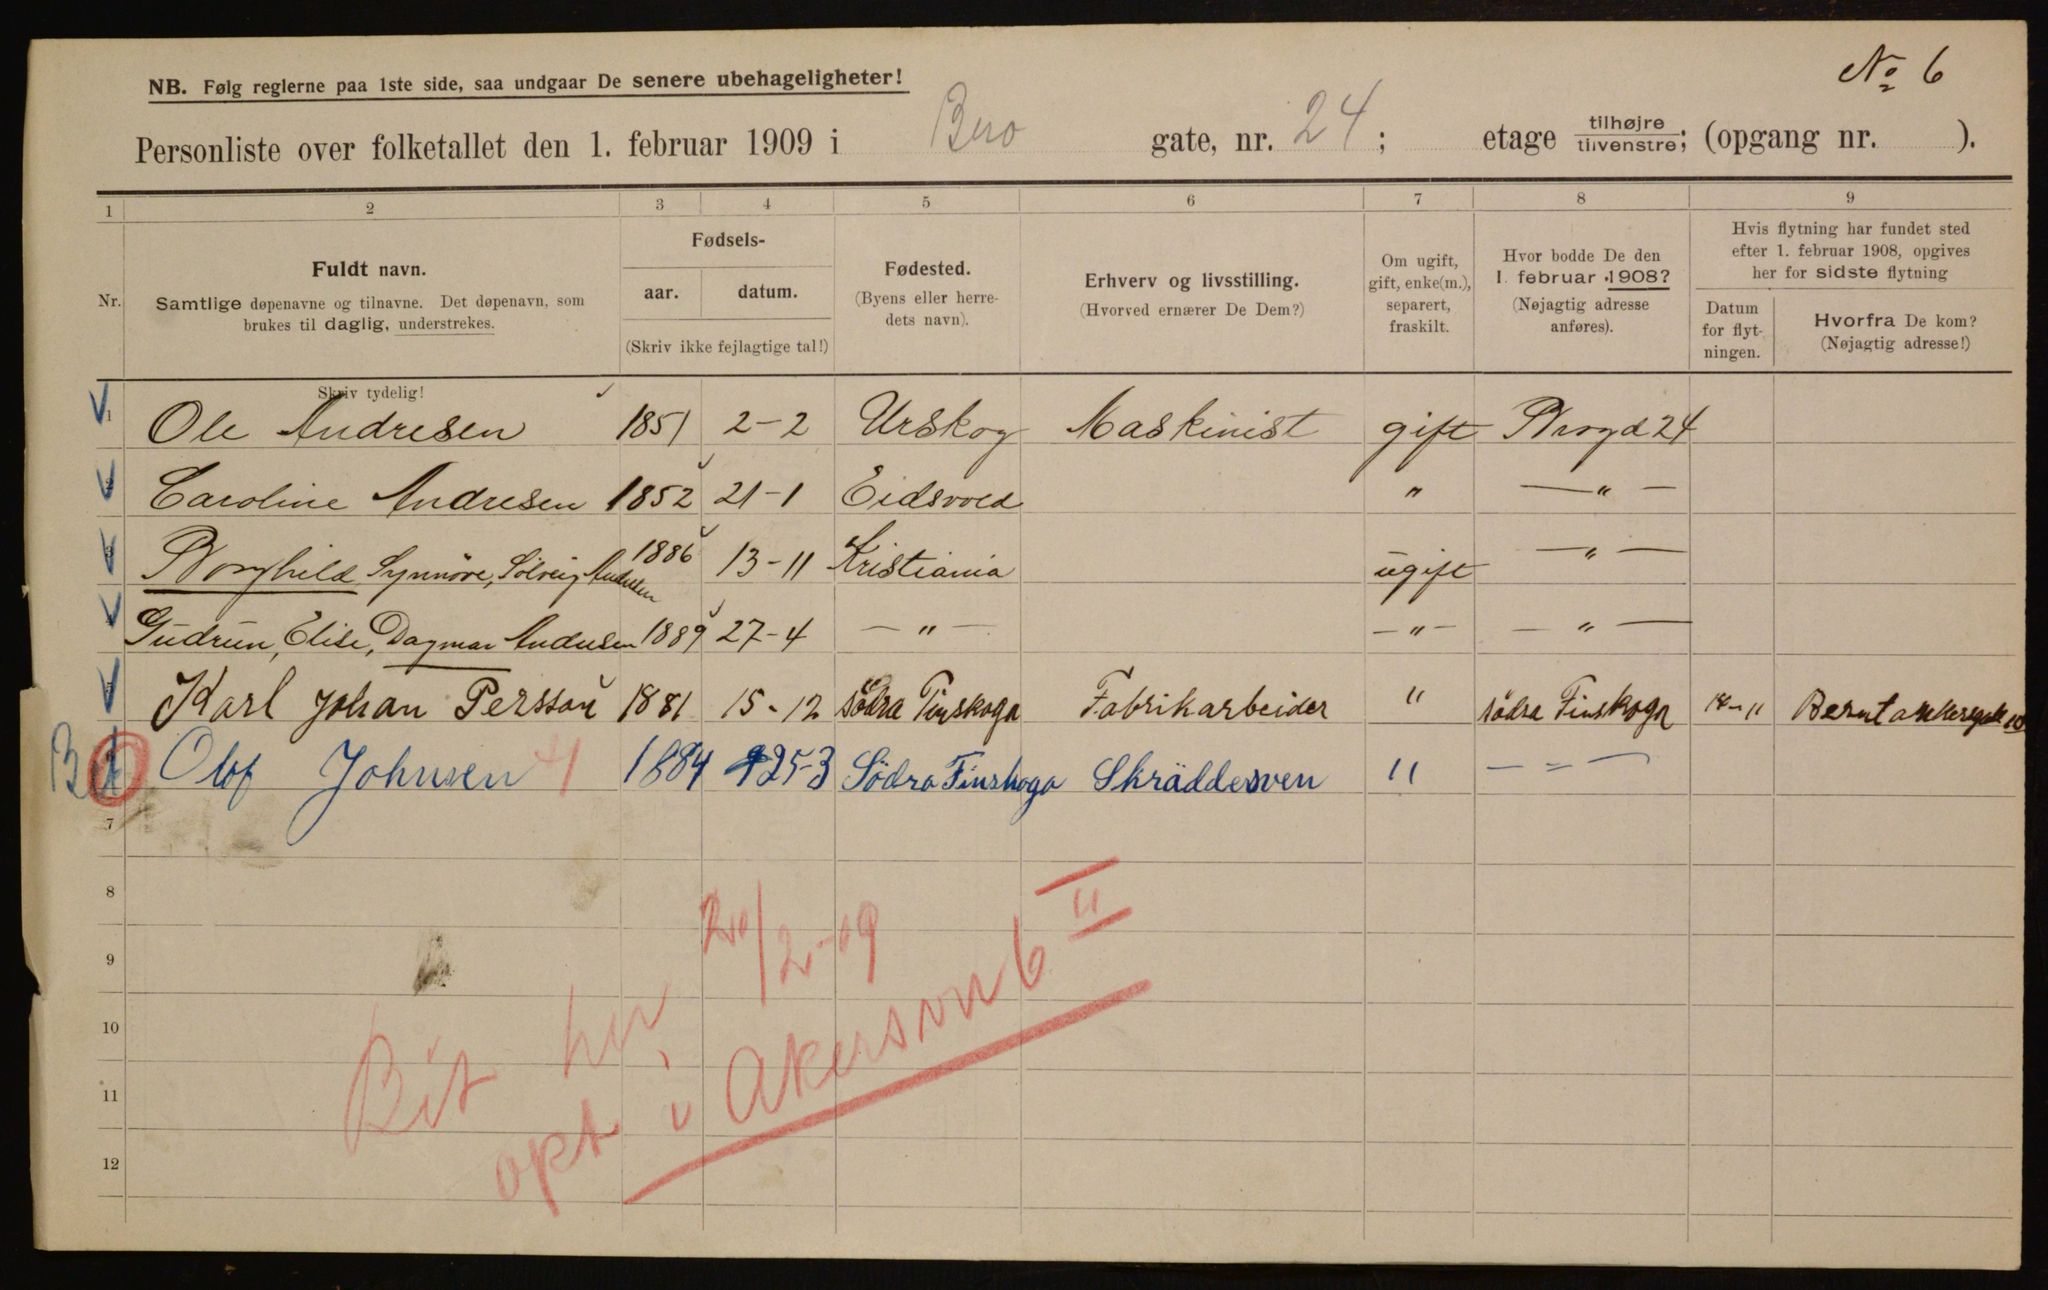 No 6
NB. Følg reglerne paa 1ste side, saa undgaar De senere ubehageligheter!
Personliste over folketallet den 1. februar 1909 i Bro gate, nr. 24; etage tilhøjre/tilvenstre; (opgang nr. ).
1 2 3 4 5 6 7 8 9
Nr.
Fuldt navn.
Samtlige døpenavne og tilnavne. Det døpenavn, som
brukes til daglig, understrekes.
Fødsels-
aar. datum.
(Skriv ikke fejlagtige tal!)
Fødested.
(Byens eller herre-
dets navn).
Erhverv og livsstilling.
(Hvorved ernærer De Dem?)
Om ugift,
gift, enke(m.),
separert,
fraskilt.
Hvor bodde De den
1. februar 1908?
(Nøjagtig adresse
anføres).
Hvis flytning har fundet sted
efter 1. februar 1908, opgives
her for sidste flytning
Datum
for flyt-
ningen.
Hvorfra De kom?
(Nøjagtig adresse!)
Skriv tydelig!
1 Ole Andresen 1851 2-2 Urskog Maskinist gift Brogd 24
2 Caroline Andresen 1852 21-1 Eidsvold " — " —
3 Borghild Synnöve, Solveig Andresen 1886 13-11 Kristiania ugift — " —
4 Gudrun, Elise, Dagmar Andresen 1889 27-4 — " — — " — — " —
5 Karl Johan Persson 1881 15-12 södra Finskoga Fabrikarbeider " södra Finskoga 18-11 Bernt ankersgate 10
Olof Johnsen 1884 25-3 Södra Finskoga Skräddesven " — " —
7
8
9
10
11
12
20/2-09
Bit her
opt i Akersvn 6 II